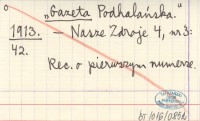 „Gazeta Podhalańska."
1913. — Nasze Zdroje 4, nr 3:
42.
Rec. o pierwszym numerze.